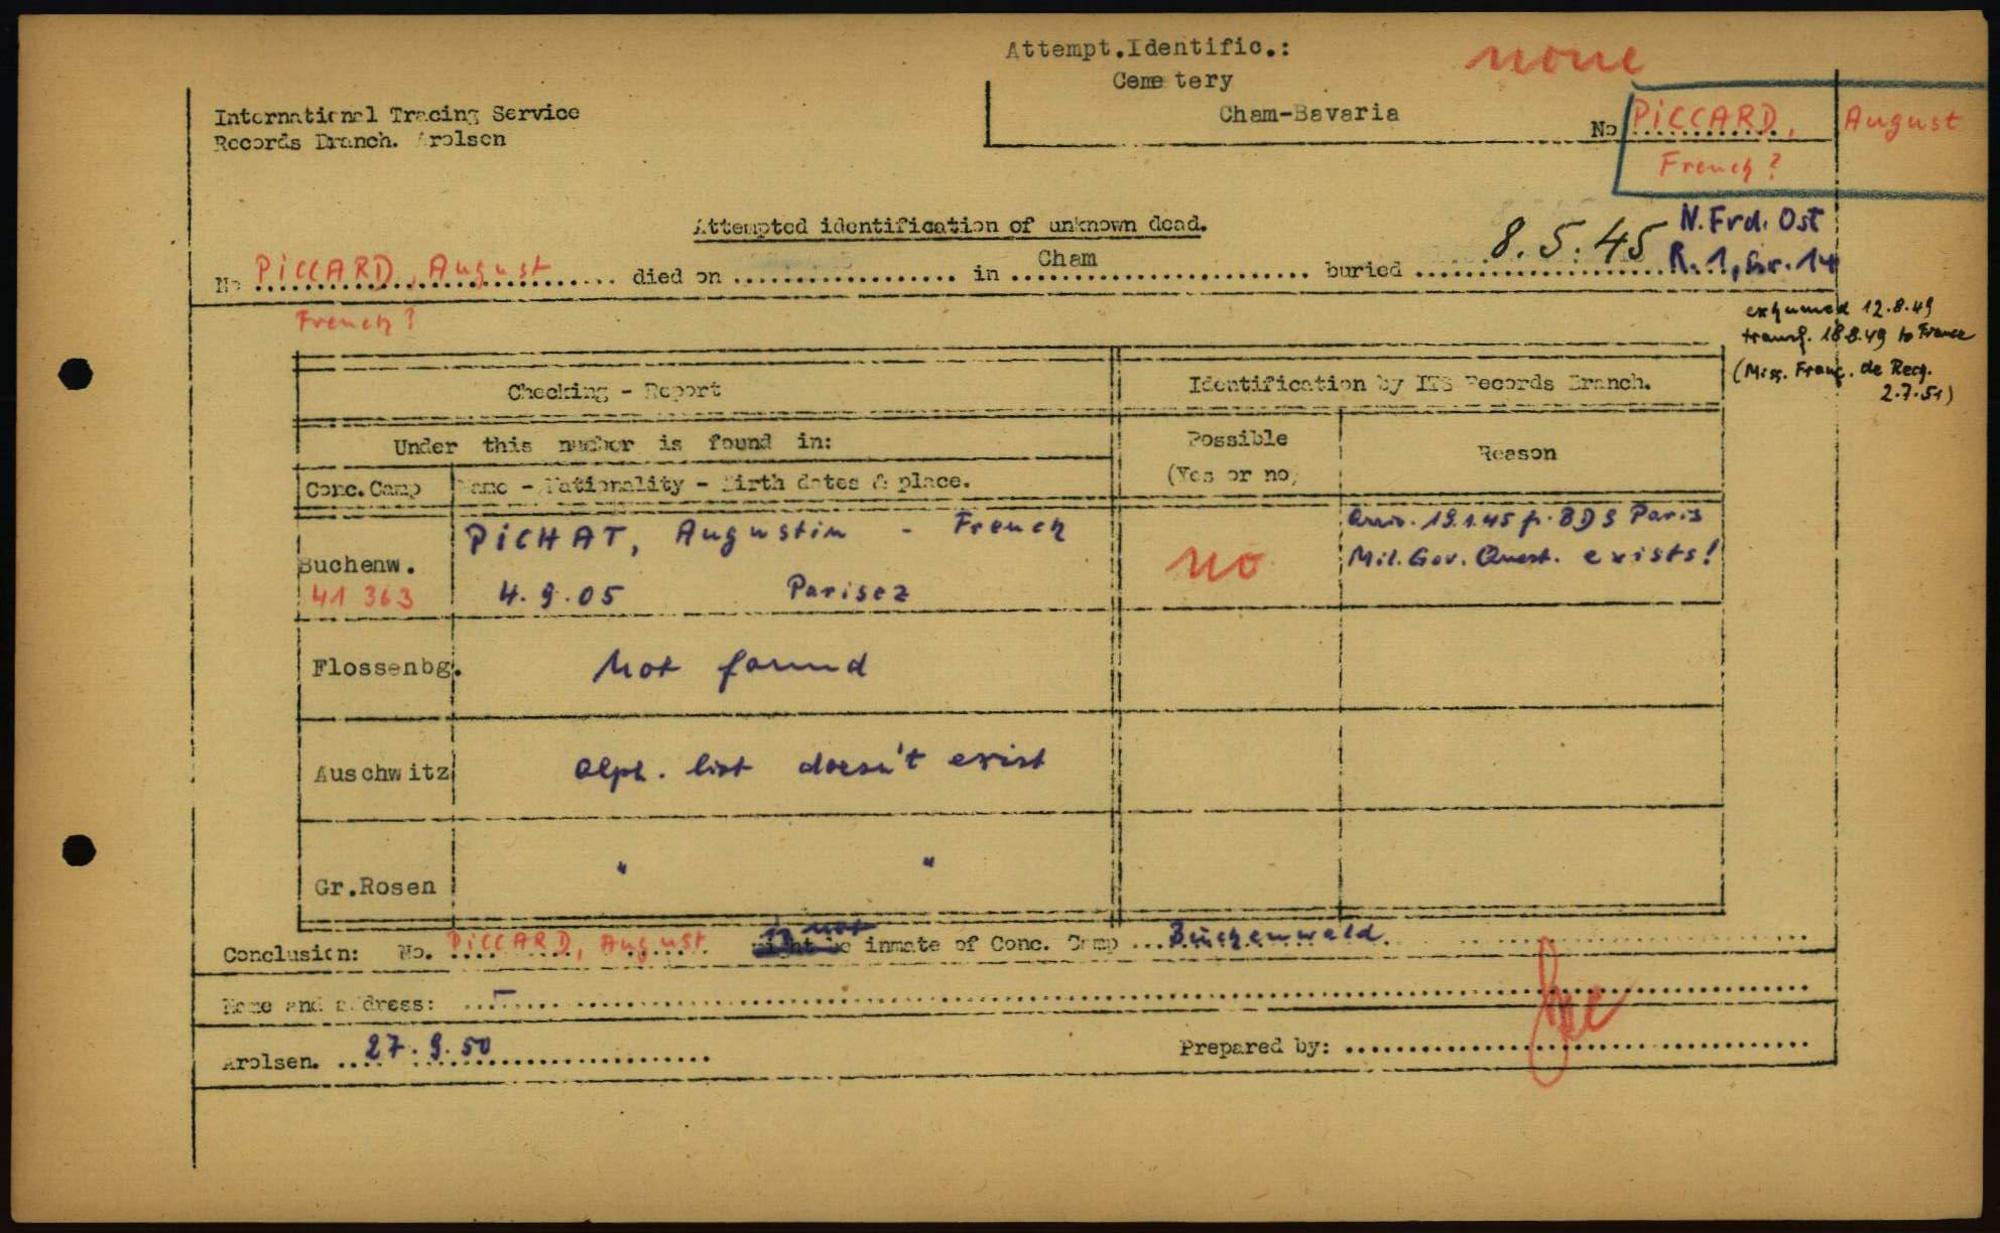 Attempt.Identific.:
none
Cemetery
Cham-Bavaria
International Tracing Service
Records Branch. Arolsen
No PiCCARD, August
French?
Attempted identification of unknown dead.
No PiCCARD, August died on in Cham buried 8.5.45 N.Frd. Ost
R.1, Gr. 14
French?
exhumed 12.8.49
transf. 18.8.49 to France
(Miss. Franç. de Rech.
2.7.51)
Checking - Report
Identification by ITS Records Branch.
Under this number is found in:
Possible
(Yes or no)
Reason
Conc.Camp
Name - Nationality - Birth dates & place.
Buchenw.
41 363
PiCHAT, Augustin - French
4.9.05 Parisez
no
Arriv. 19.1.45 f. BDS Paris
Mil. Gov. Quest. exists!
Flossenbg.
Not found
Auschwitz
Alph. list doesn't exist
Gr.Rosen
" "
Conclusion: No. PiCCARD, August is not inmate of Conc. Camp Buchenwald
Name and address: -
Arolsen. 27.9.50
Prepared by: